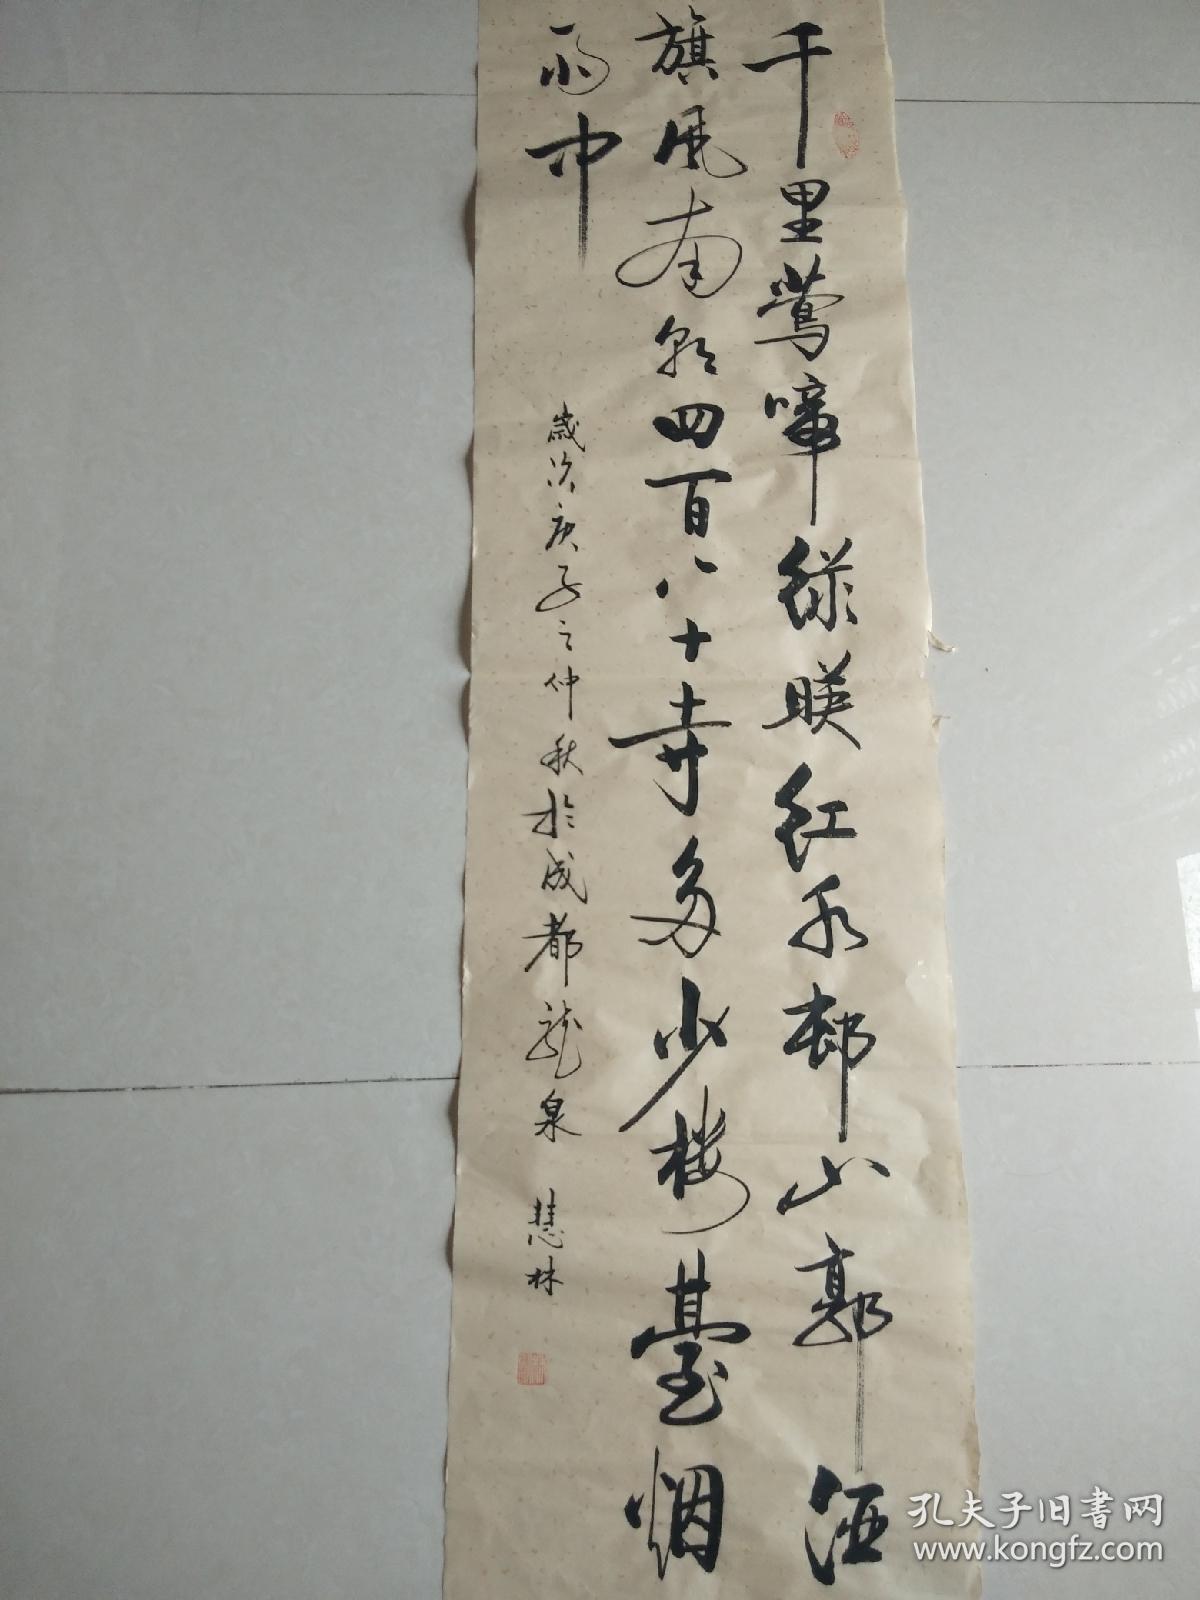 千里莺啼绿映红水邨山郭酒
旗風南朝四百八十寺多少楼臺烟
雨中
歲次庚子之仲秋於成都龍泉 慧林
孔夫子旧书网
www.kongfz.com